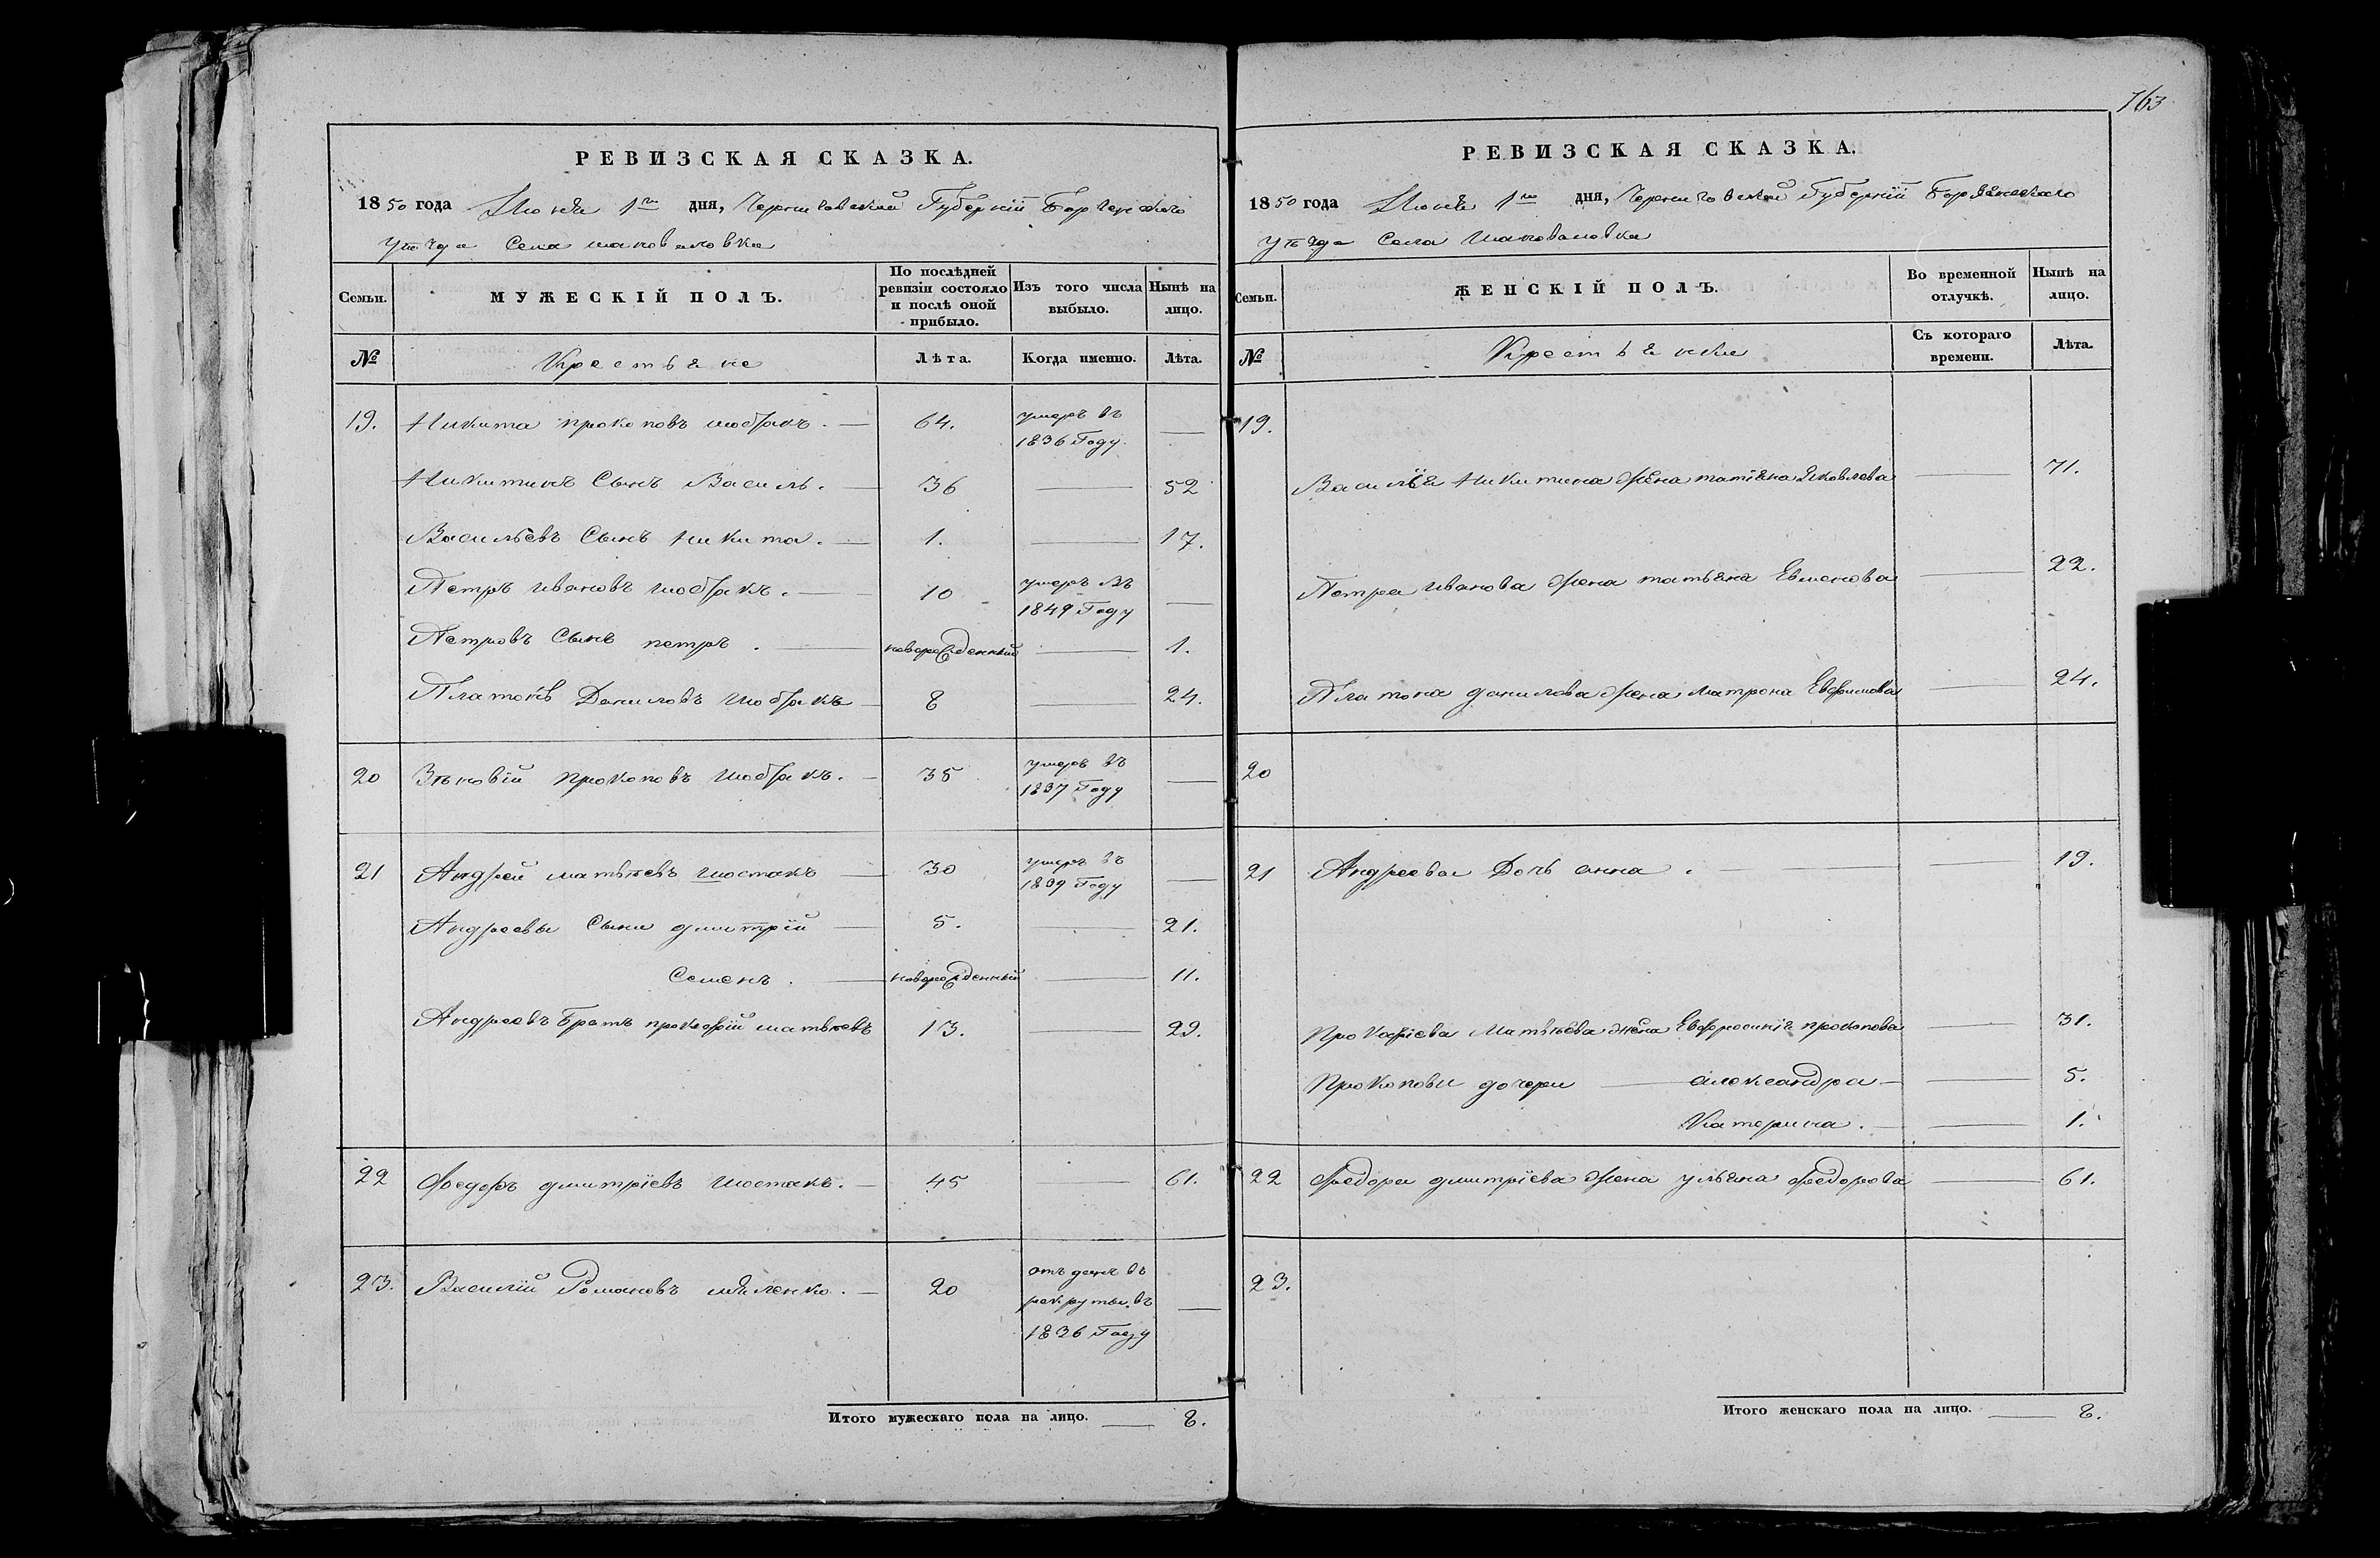 763
РЕВИЗСКАЯ СКАЗКА.
1850 года Июня 1го дня, Черниговской Губерніи Борзенского
уѣзда Села шаповаловка
Семьи. МУЖЕСКІЙ ПОЛЪ. По послѣдней ревизіи состояло и послѣ оной прибыло. Изъ того числа выбыло. Нынѣ на лицо.
№ Крестьяне Лѣта. Когда именно. Лѣта.
19. Никита прокоповъ шобракъ. — 64. умеръ въ 1836 Году —
Никитинъ Сынъ Василь. — 36 — 52
Васильевъ Сынъ никита. — 1. — 17.
Петръ ивановъ шобракъ. — 10 умеръ въ 1849 Году —
Петровъ Сынъ петръ. — новорожденный — 1.
Платонъ Даниловъ шобракъ — 8 — 24.
20 Зѣновій прокоповъ шобракъ. — 35 умеръ въ 1837 Году —
21 Андрей матвѣевъ шостакъ — 30 умеръ въ 1839 Году —
Андреевы Сыни дмитрій — 5. — 21.
Семенъ. — новорожденный — 11.
Андреевъ Братъ прокофій матвѣевъ 13. — 29.
22 Федоръ дмитріевъ шостакъ. — 45 — 61.
23. Василій Романовъ — 20 отъ данъ въ рекруты въ 1836 Году —
Итого мужескаго пола на лицо. — 8.
РЕВИЗСКАЯ СКАЗКА.
1850 года Июня 1го дня, Черниговской Губерніи Борзенскаго
уѣзда Села шаповаловка
Семьи. ЖЕНСКІЙ ПОЛЪ. Во временной отлучкѣ. Нынѣ на лицо.
№ Крестьянки Съ котораго времени. Лѣта.
19.
Василія никитина жена татіяна Яковлева — 71.
Петра иванова жена татьяна Евменова — 22.
Платона данилова жена матрона Евфимова — 24.
20
21 Андреева Дочь анна. — — 19.
прокофіева матвѣева жена Евфросинія прокопова — 31.
прокоповы дочери — александра — — 5.
Катерина. — — 1.
22 Федора дмитріева жена ульяна федорова — 61.
23.
Итого женскаго пола на лицо. — 8.